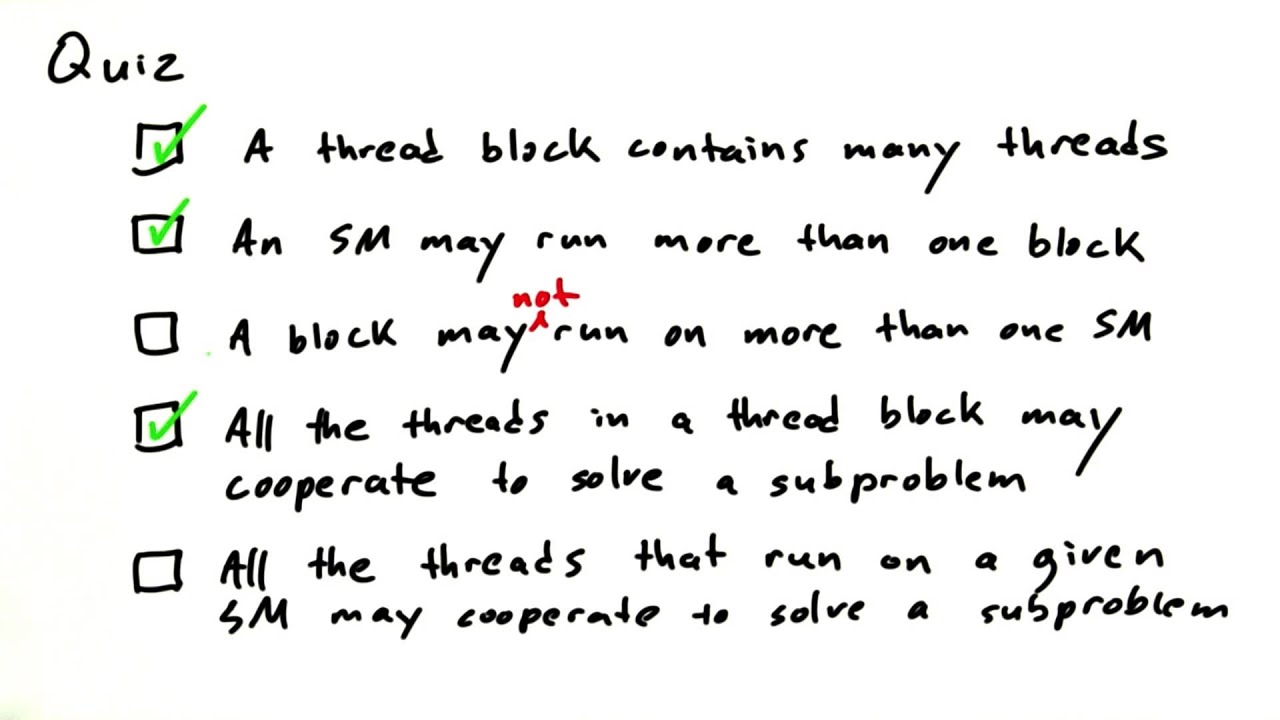 Quiz
A thread block contains many threads
An SM may run more than one block
A block may not run on more than one SM
All the threads in a thread block may
cooperate to solve a subproblem
All the threads that run on a given
SM may cooperate to solve a subproblem